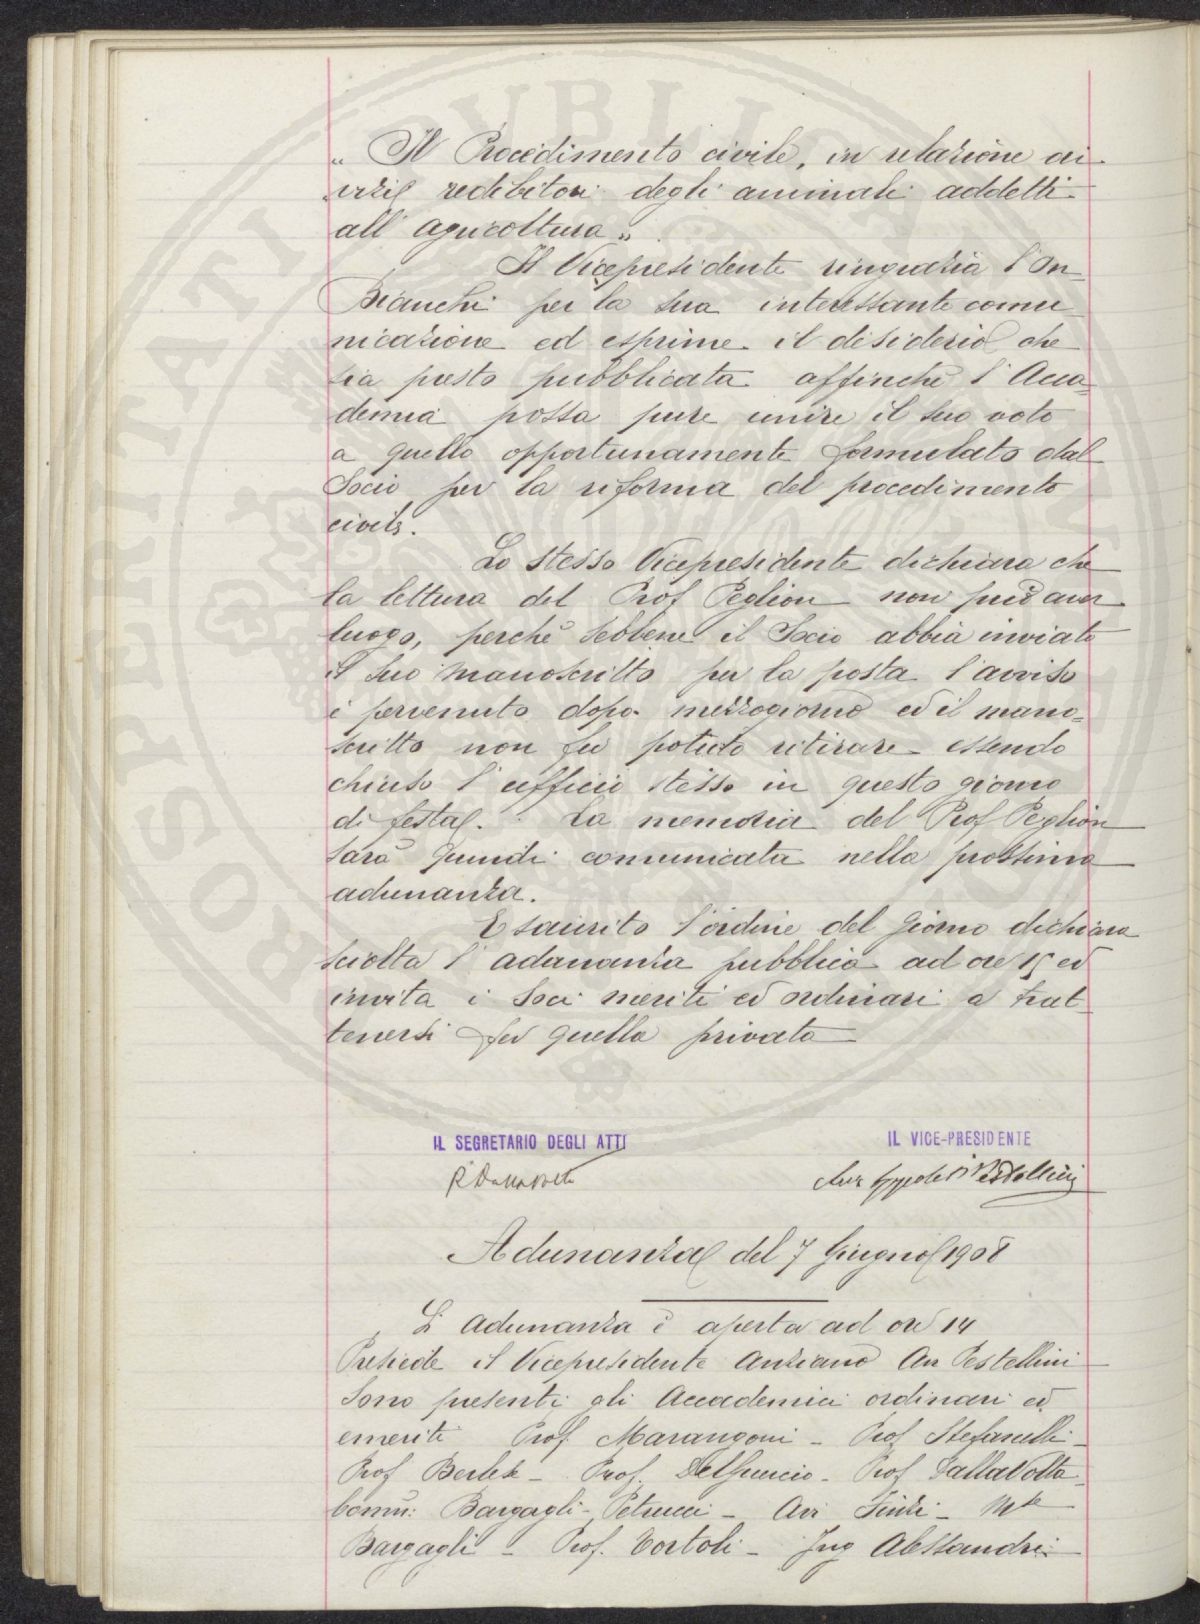 „ Il Procedimento civile, in relazione ai
vizi redibitori degli animali addetti
all' agricoltura „
Il Vicepresidente ringrazia l'On
Bianchi per la sua interessante comu
nicazione ed esprime il desiderio che
sia presto pubblicata affinchè l' Acca=
demia possa pure unire il suo voto
a quello opportunamente formulato dal
Socio per la riforma del procedimento
civile.
Lo stesso Vicepresidente dichiara che
la lettura del Prof Peglion non può aver
luogo, perchè sebbene il Socio abbia inviato
il suo manoscritto per la posta l'avviso
è pervenuto dopo mezzogiorno ed il mano=
scritto non fu potuto ritirare essendo
chiuso l' ufficio stesso in questo giorno
di festa. La memoria del Prof Peglion
sarà quindi comunicata nella prossima
adunanza.
Esaurito l'ordine del giorno dichiara
sciolta l' adunanza pubblica ad ore 15 ed
invita i Soci emeriti ed ordinari a trat
tenersi per quella privata
IL SEGRETARIO DEGLI ATTI
IL VICE-PRESIDENTE
Pestellini
Adunanza del 7 Giugno 1908
L' adunanza è aperta ad ore 14
Presiede il Vicepresidente Anziano Avv Pestellini
Sono presenti gli Accademici ordinari ed
emeriti Prof. Marangoni - Prof Stefanelli -
Prof Berlese - Prof. Del Guercio - Prof Dalla Volta
Comm: Bargagli-Petrucci - Avv - M
Bargagli - Prof. Tortoli - Ing Alessandri -
PROSPERITATI PVBLICAE